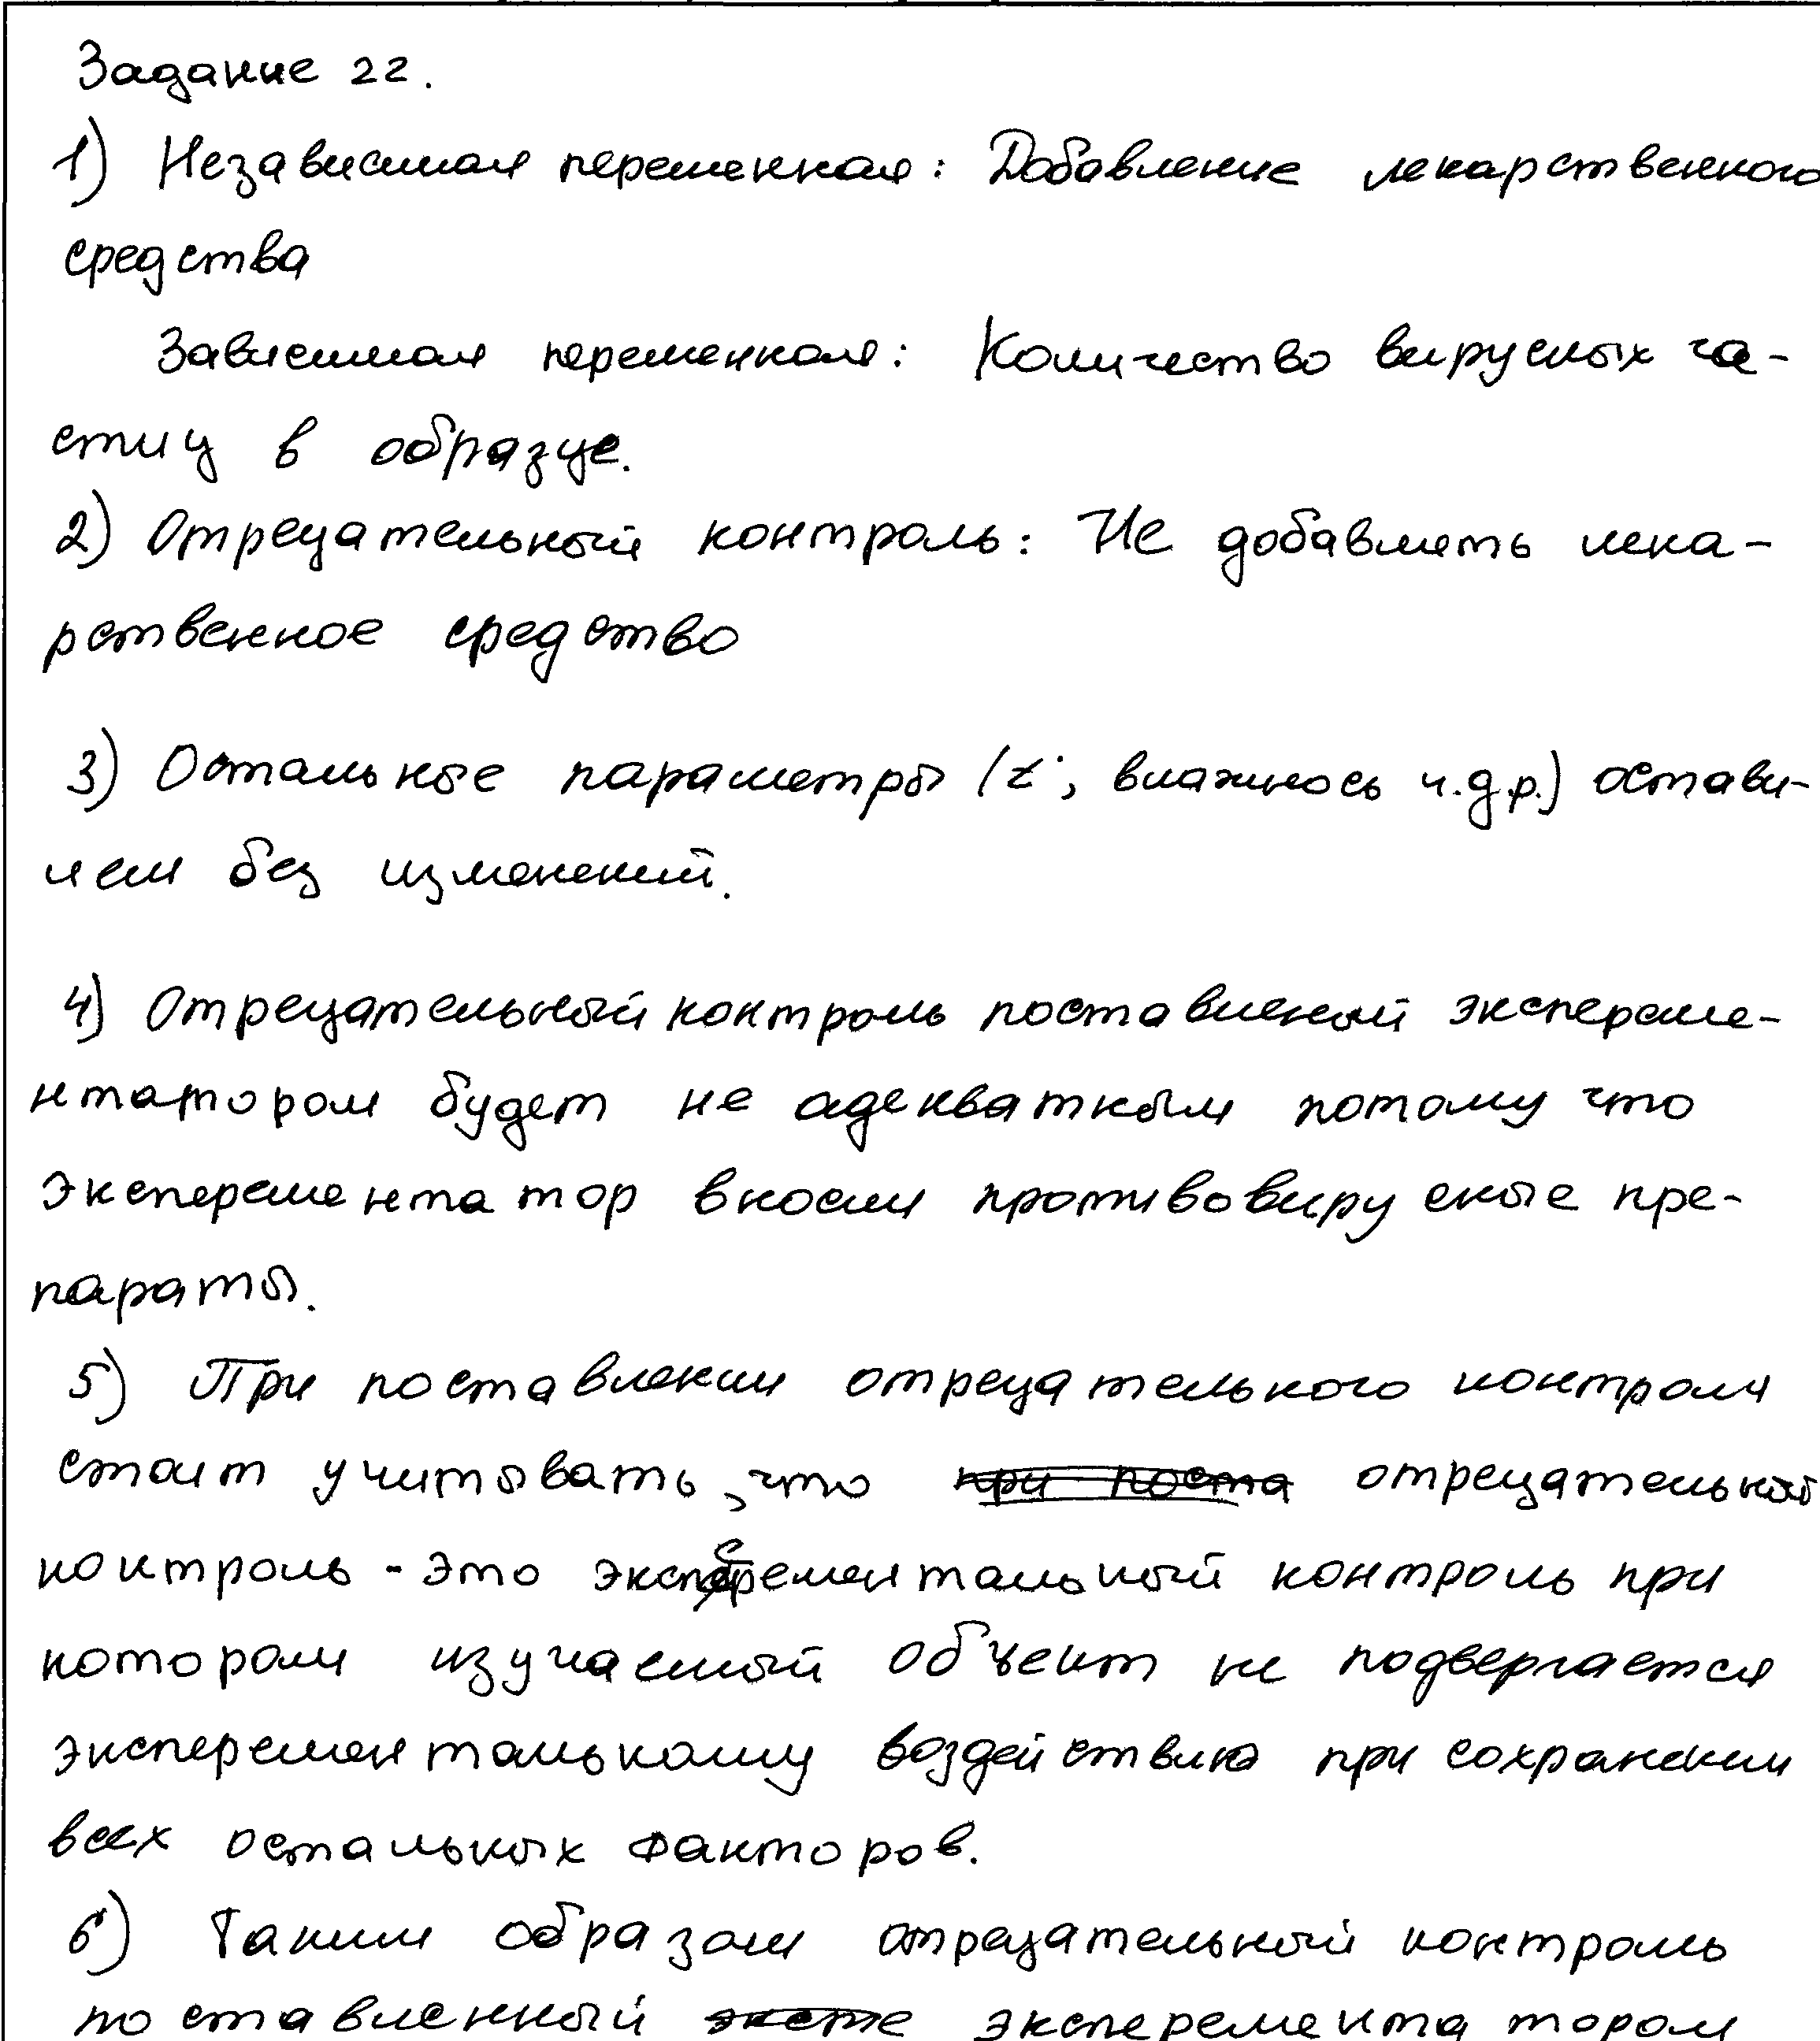 Задание 22.
1) Независимая переменная: Добавление лекарственного
средства
Зависимая переменная: Количество вирусных ча-
стиц в образце.
2) Отрецательный контроль: Не добавлять лека-
рственное средство
3) Остальные параметры (t°, влажнось и.д.р.) остави-
лем без изменений.
4) Отрецательный контроль поставленый эксpереме-
нтатором будет не адекватным потому что
эксперементатор вносил противовирусные пре-
параты.
5) При поставлении отрецательного контроля
стоит учитывать, что при поста отрецательный
контроль - это эксперементальный контроль при
котором изучаемый объект не подвергается
эксперементальному воздействию при сохранении
всех остальных факторов.
6) Таким образом отрецательный контроль
поставленный экспе эксперементатором